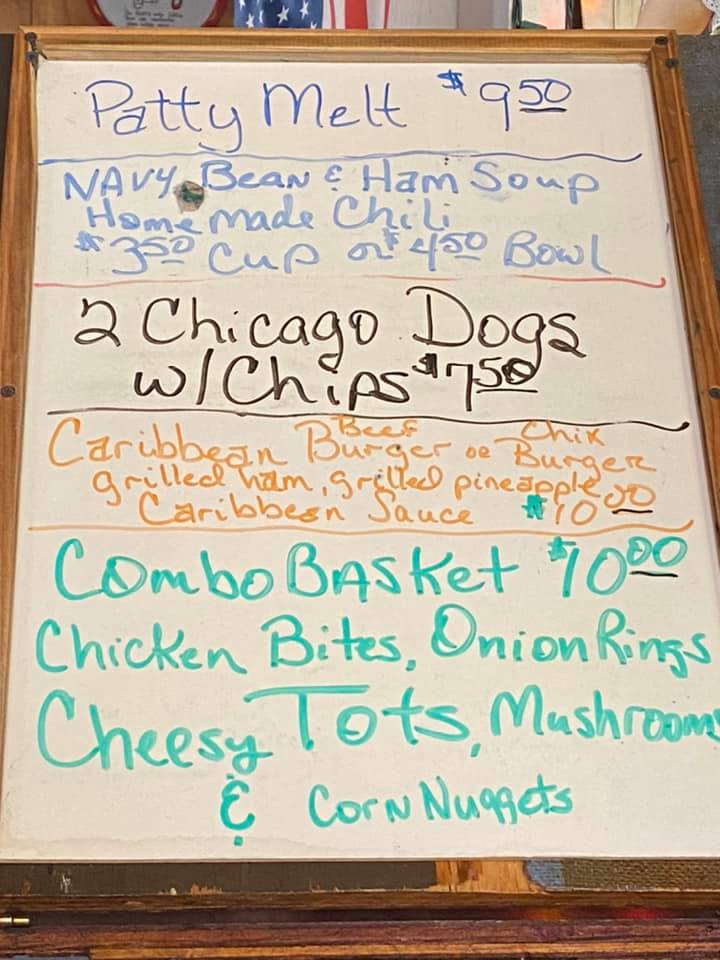 Patty Melt $9.50
NAVY Bean & Ham Soup
Homemade Chili
$3.50 Cup or $4.50 Bowl
2 Chicago Dogs
w/Chips $7.50
Beef Chix
Caribbean Burger or Burger
grilled ham, grilled pineapple
Caribbean Sauce $10.00
Combo BASket $10.00
Chicken Bites, Onion Rings
Cheesy Tots, Mushrooms
& Corn Nuggets